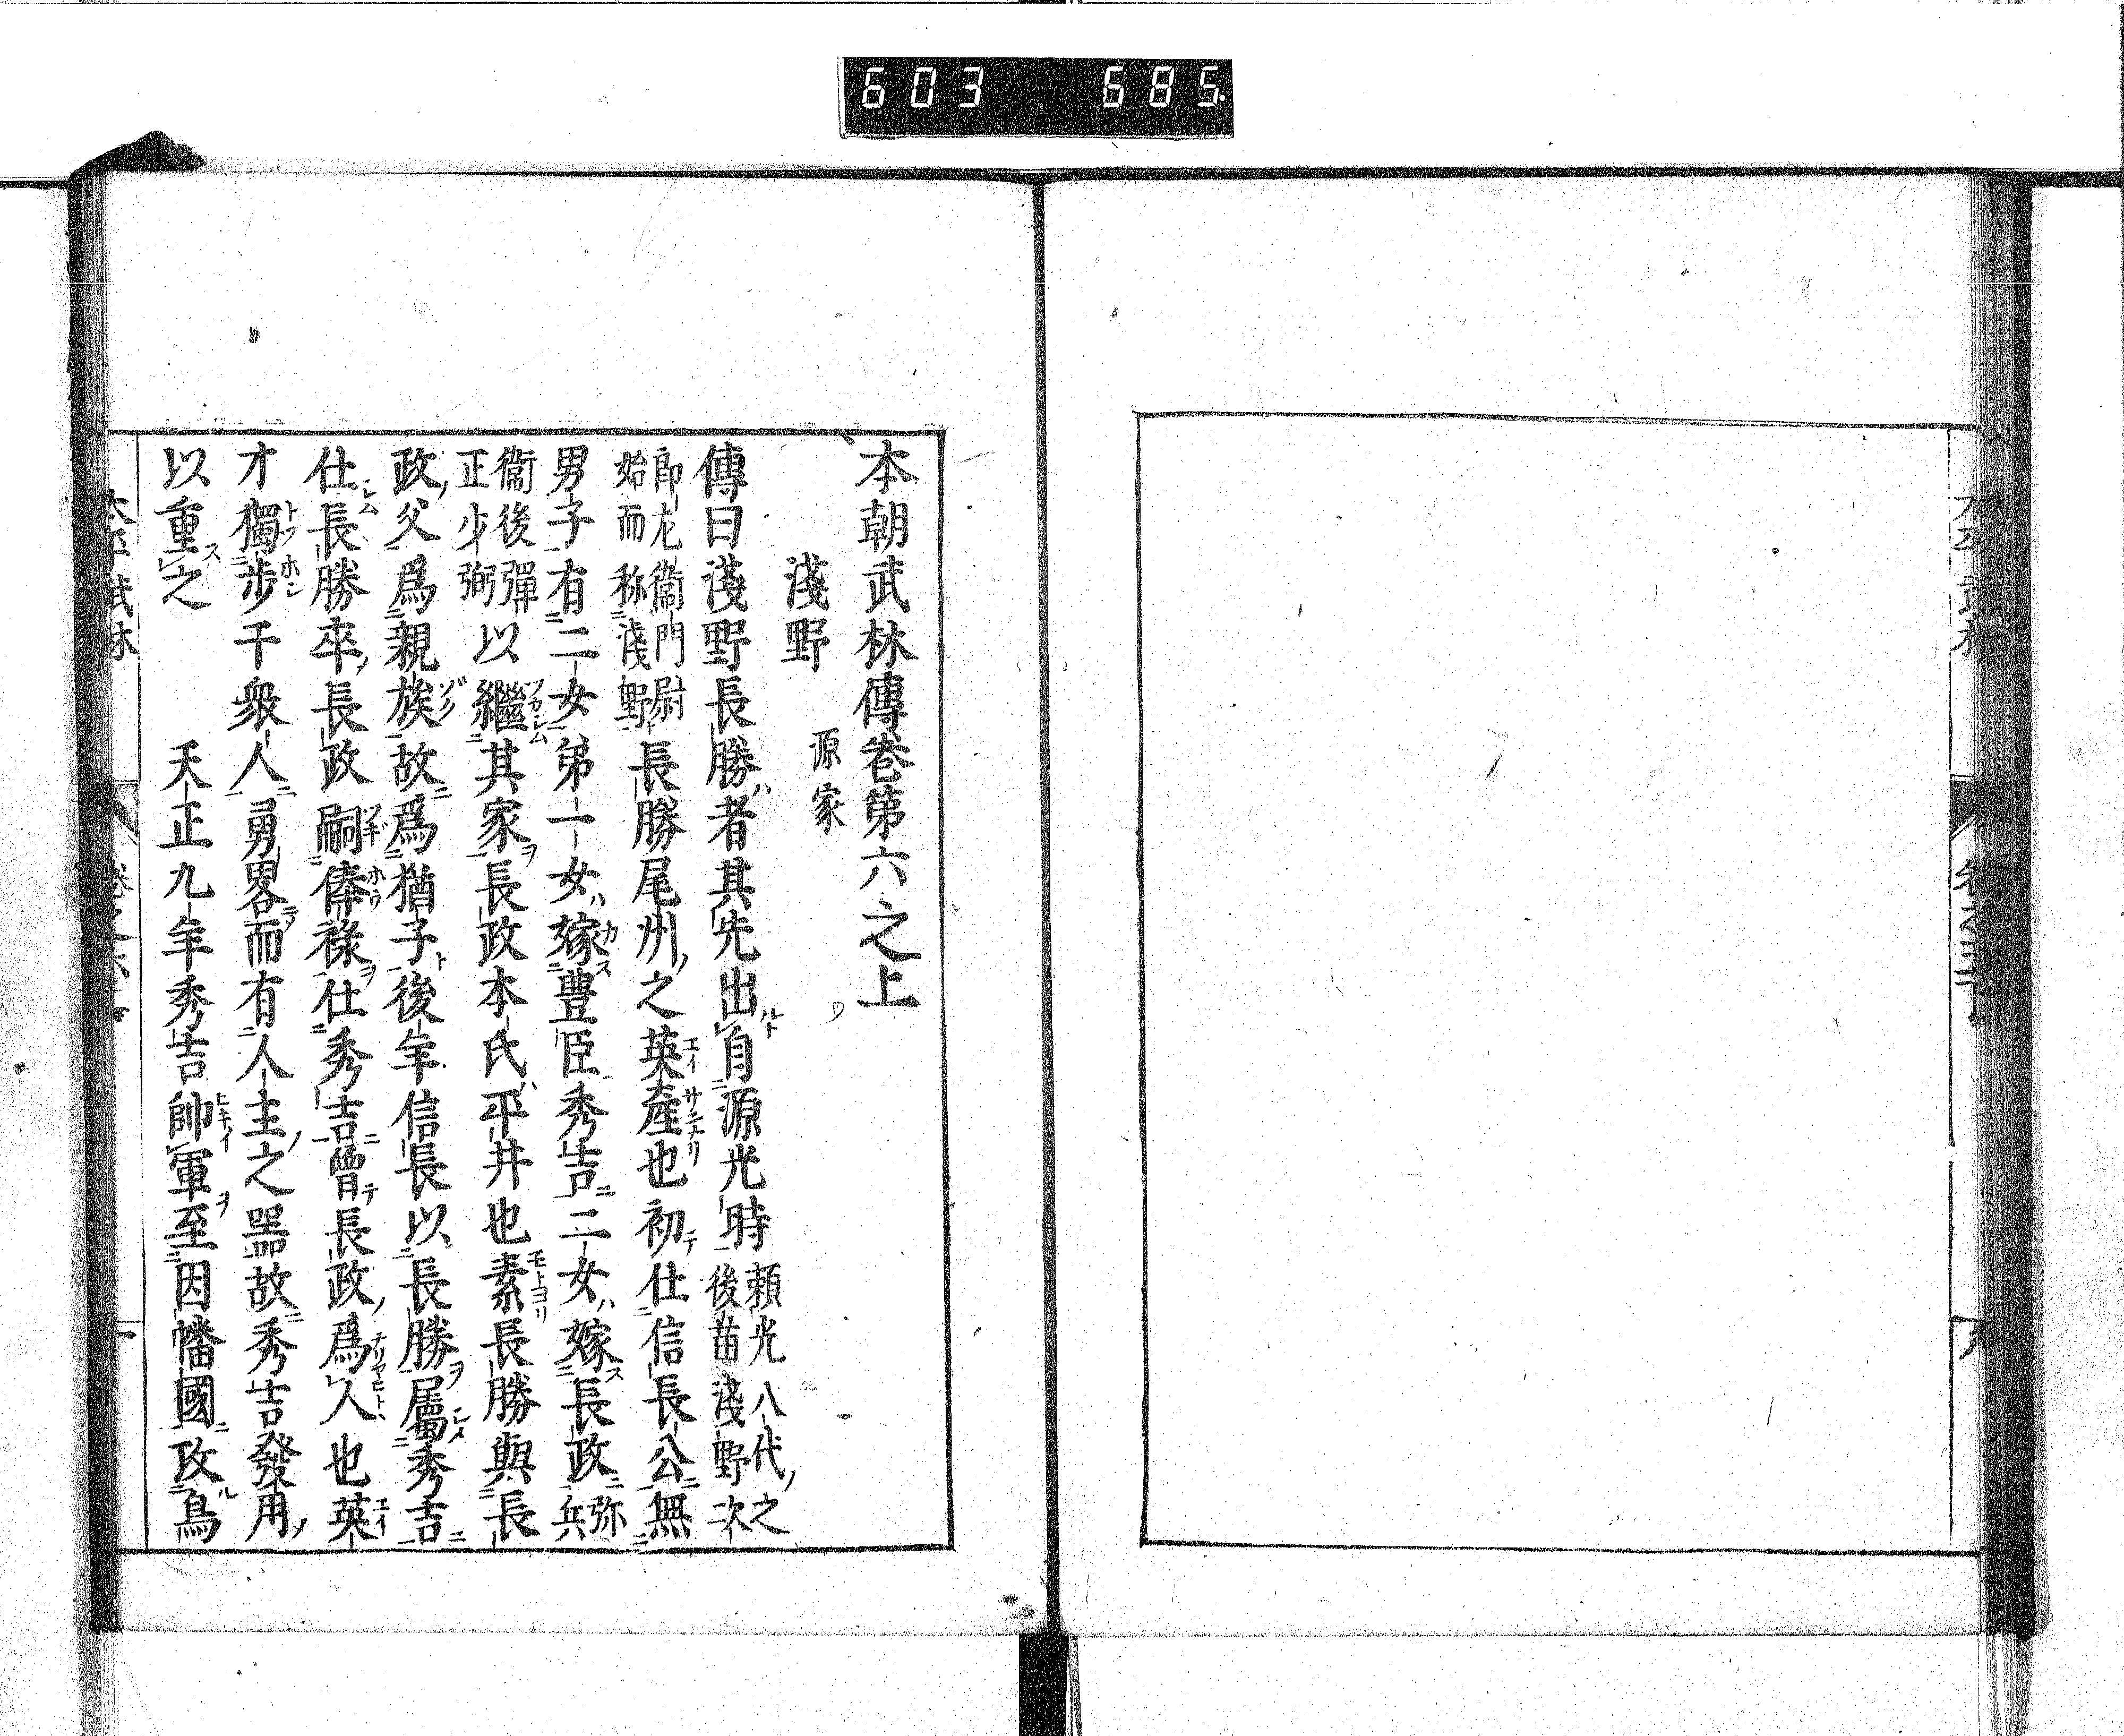 603 685
本朝武林傳卷第六之上
淺野 源家
傳曰淺野長勝者其先出自源光時賴光八代之後苗淺野次
郎左衞門尉始而称淺野長勝尾州之英産也初仕信長公無
男子有二女第一女嫁豊臣秀吉二女嫁長政弥兵
衞後彈正少弼以繼其家長政本氏平井也素長勝與長
政父爲親族故爲猶子後年信長以長勝屬秀吉
仕長勝卒長政嗣俸祿仕秀吉曾長政爲人也英
才獨步千衆人勇畧而有人主之器故秀吉發用
以重之 天正九年秀吉帥軍至因幡國攻鳥